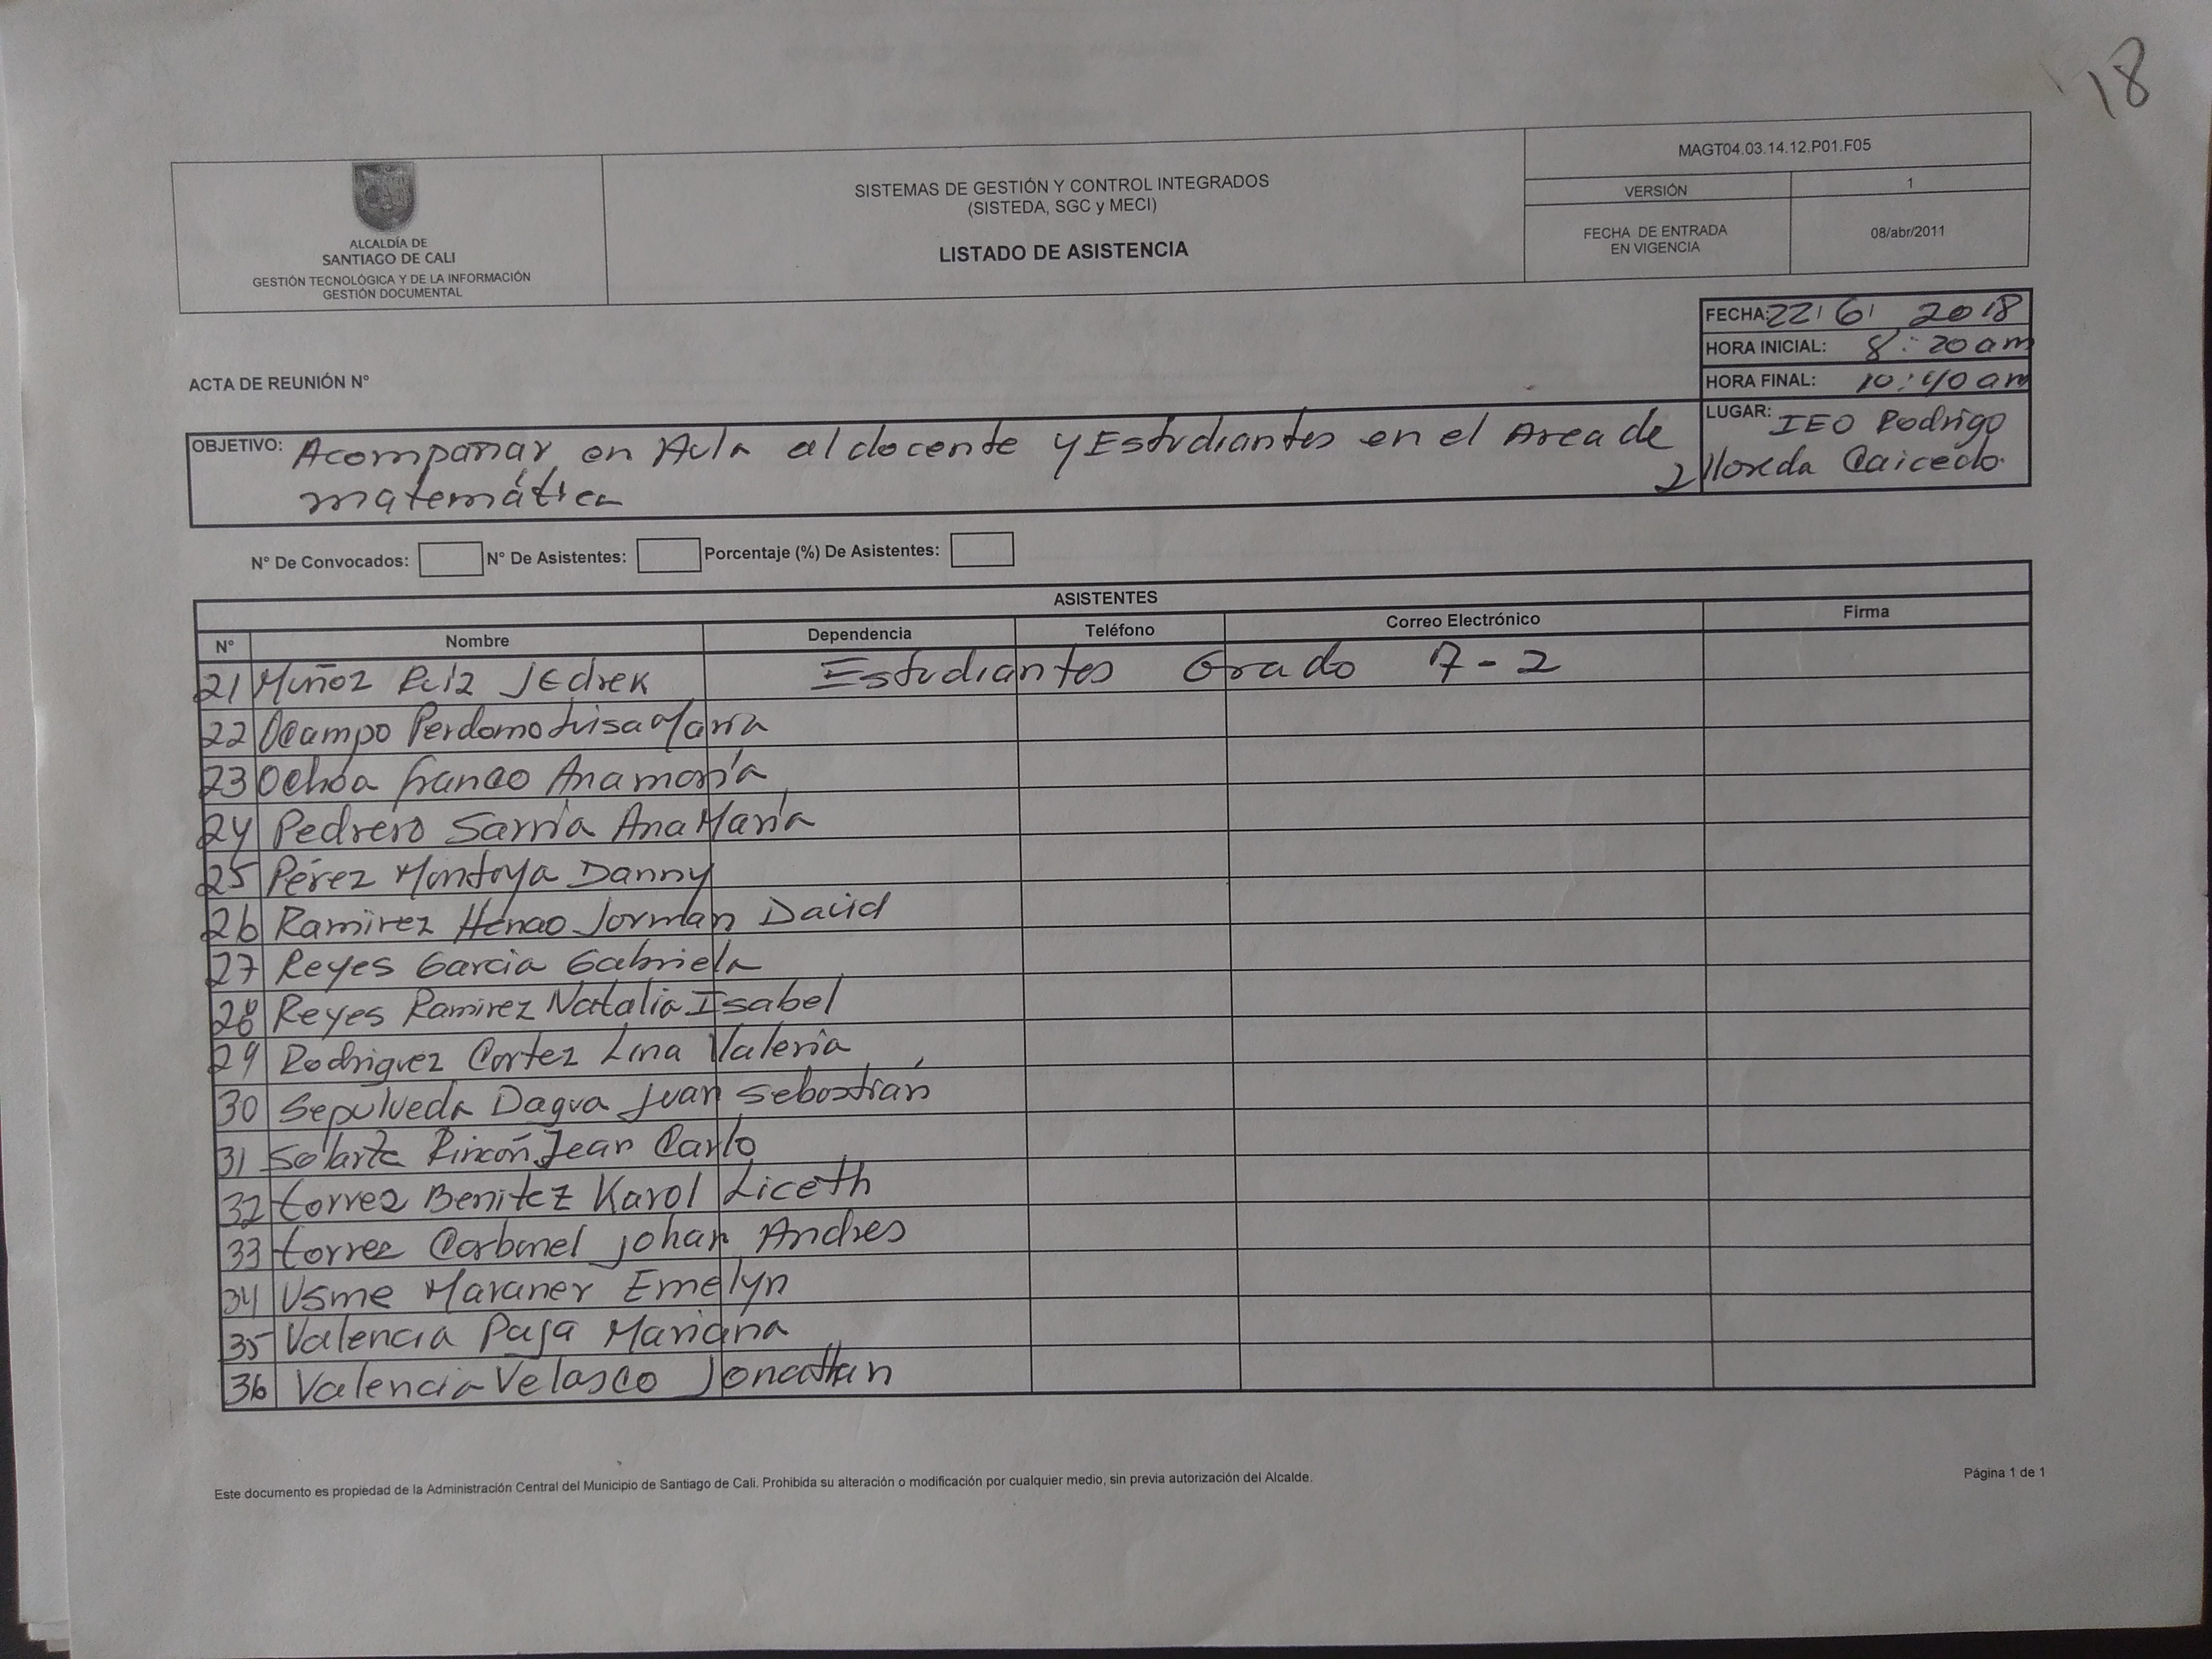 18
ALCALDÍA DE
SANTIAGO DE CALI
GESTIÓN TECNOLÓGICA Y DE LA INFORMACIÓN
GESTIÓN DOCUMENTAL
SISTEMAS DE GESTIÓN Y CONTROL INTEGRADOS
(SISTEDA, SGC y MECI)
LISTADO DE ASISTENCIA
MAGT04.03.14.12.P01.F05
VERSIÓN 1
FECHA DE ENTRADA
EN VIGENCIA
08/abr/2011
FECHA: 22 6 2018
HORA INICIAL: 8:20 am
HORA FINAL: 10:40 am
ACTA DE REUNIÓN N°
LUGAR: IEO Rodrigo
Lloreda Caicedo
OBJETIVO: Acompañar en Aula al docente y Estudiantes en el Area de
matemática
N° De Convocados: N° De Asistentes: Porcentaje (%) De Asistentes:
ASISTENTES
N° Nombre Dependencia Teléfono Correo Electrónico Firma
21 Muñoz Ruiz JEdrek Estudiantes Grado 7-2
22 Ocampo Perdomo Luisa María
23 Ochoa franco Ana maría
24 Pedrero Sarria Ana María
25 Pérez Montoya Danny
26 Ramirez Henao Jorman David
27 Reyes Garcia Gabriela
28 Reyes Ramirez Natalia Isabel
29 Rodriguez Cortez Lina Valeria
30 Sepulveda Dagua Juan Sebastián
31 Solarte Rincón Jean Carlo
32 torrez Benitez Karol Liceth
33 torrez Carbonel johan Andres
34 Usme Emelyn
35 Valencia Mariana
36 Valencia Velasco Jonathan
Este documento es propiedad de la Administración Central del Municipio de Santiago de Cali. Prohibida su alteración o modificación por cualquier medio, sin previa autorización del Alcalde.
Página 1 de 1